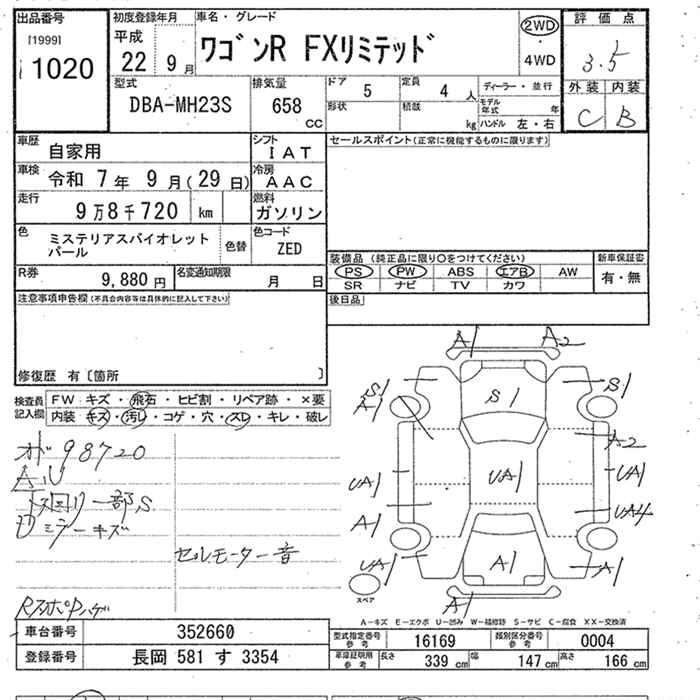 出品番号
[1999]
1020
初度登録年月
平成
22 9月
車名・グレード
ワゴンR FXリミテッド
2WD
・
4WD
評価点
3.5
外装 内装
C B
型式
DBA-MH23S
排気量
658
CC
ドア 5
定員 4人
形状
積載 kg
ディーラー・並行
モデル年式 年
ハンドル 左・右
車歴 自家用
シフト IAT
車検 令和 7年 9月(29日)
冷房 AAC
走行 9万8千720 km
燃料 ガソリン
色 ミステリアスバイオレット
パール
色替
色コード ZED
R券 9,880円
名変通知期限 月 日
セールスポイント(正常に機能するものに限ります)
装備品 (純正品に限り〇をつけてください)
PS PW ABS エアB AW
SR ナビ TV カワ
新車保証書
有・無
後日品
注意事項申告欄(不具合内容等は具体的に記入して下さい)
修復歴 有〔箇所 〕
検査員
記入欄
FW キズ・飛石・ヒビ割・リペア跡・×要
内装 キズ・汚レ・コゲ・穴・スレ・キレ・破レ
オド98720
AU
回リ一部S
ミラーキズ
セルモーター音
A1 A2
S1
A1
S1
S1
A2
UA1
UA1
UA1
UA4
A1
UA1
A1
A1
A1
スペア
A-キズ E-エクボ U-凹み W-補修跡 S-サビ C-腐食 XX-交換済
車台番号 352660
登録番号 長岡 581 す 3354
型式指定番号
参考
16169
類別区分番号
参考
0004
車庫証明用
参考
長さ 339 cm
幅 147 cm
高さ 166 cm